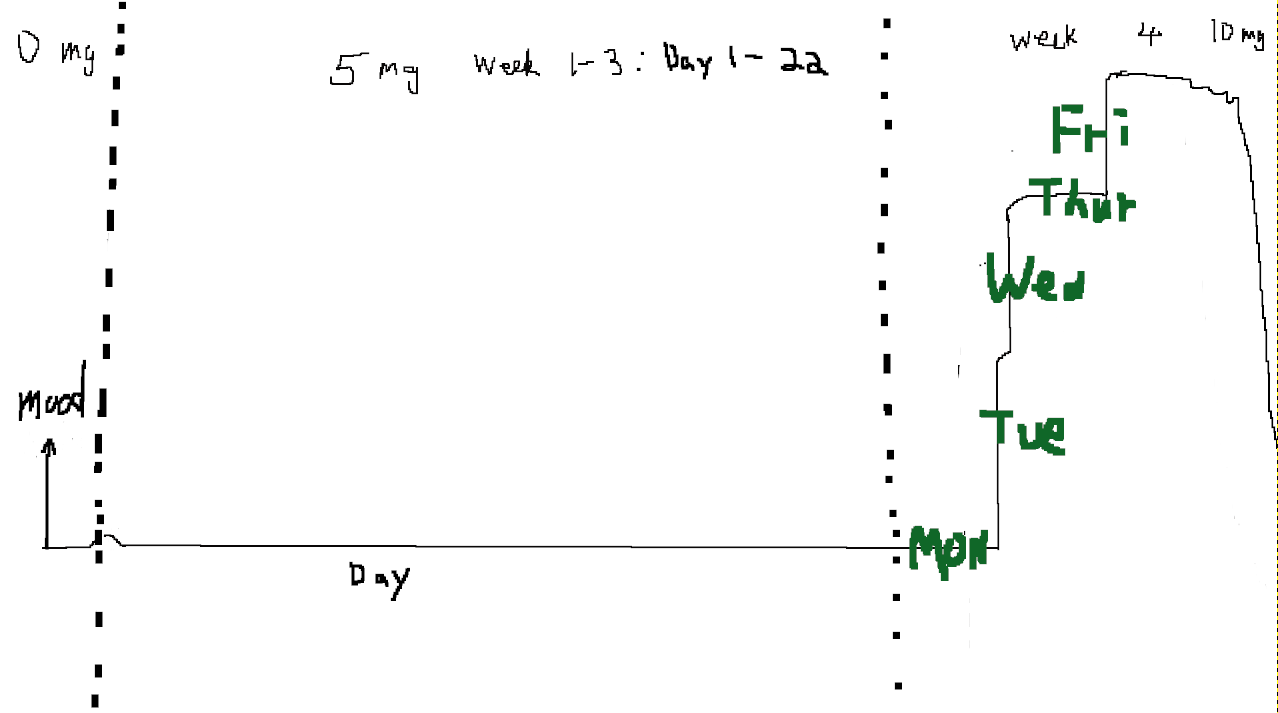 0 mg
5 mg week 1-3: Day 1-22
week 4 10 mg
Fri
Thur
Wed
Mood
Tue
Mon
Day